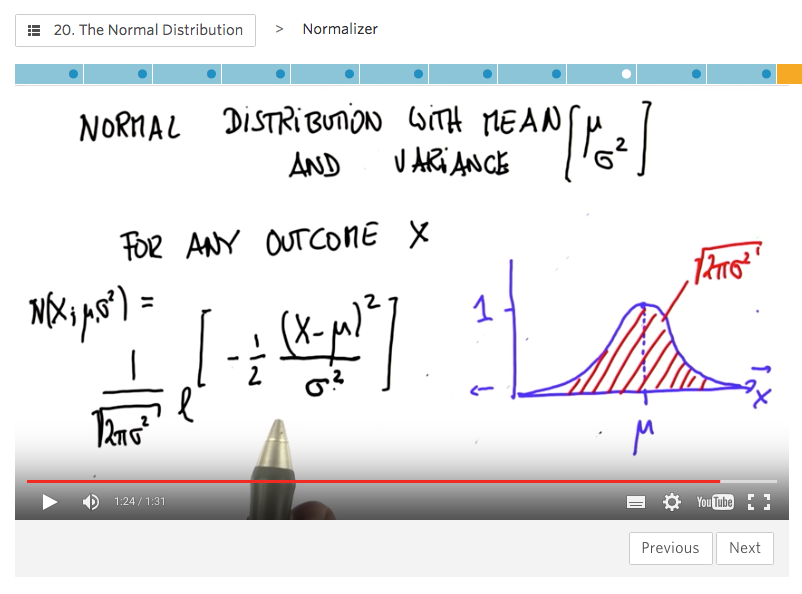 20. The Normal Distribution > Normalizer
NORMAL DISTRIBUTION WITH MEAN [μ
AND VARIANCE σ²]
FOR ANY OUTCOME X
N(X; μ,σ²) =
1/√2πσ² e[-1/2 (X-μ)²/σ²]
√2πσ²
1
μ
x
1:24 / 1:31
YouTube
Previous
Next